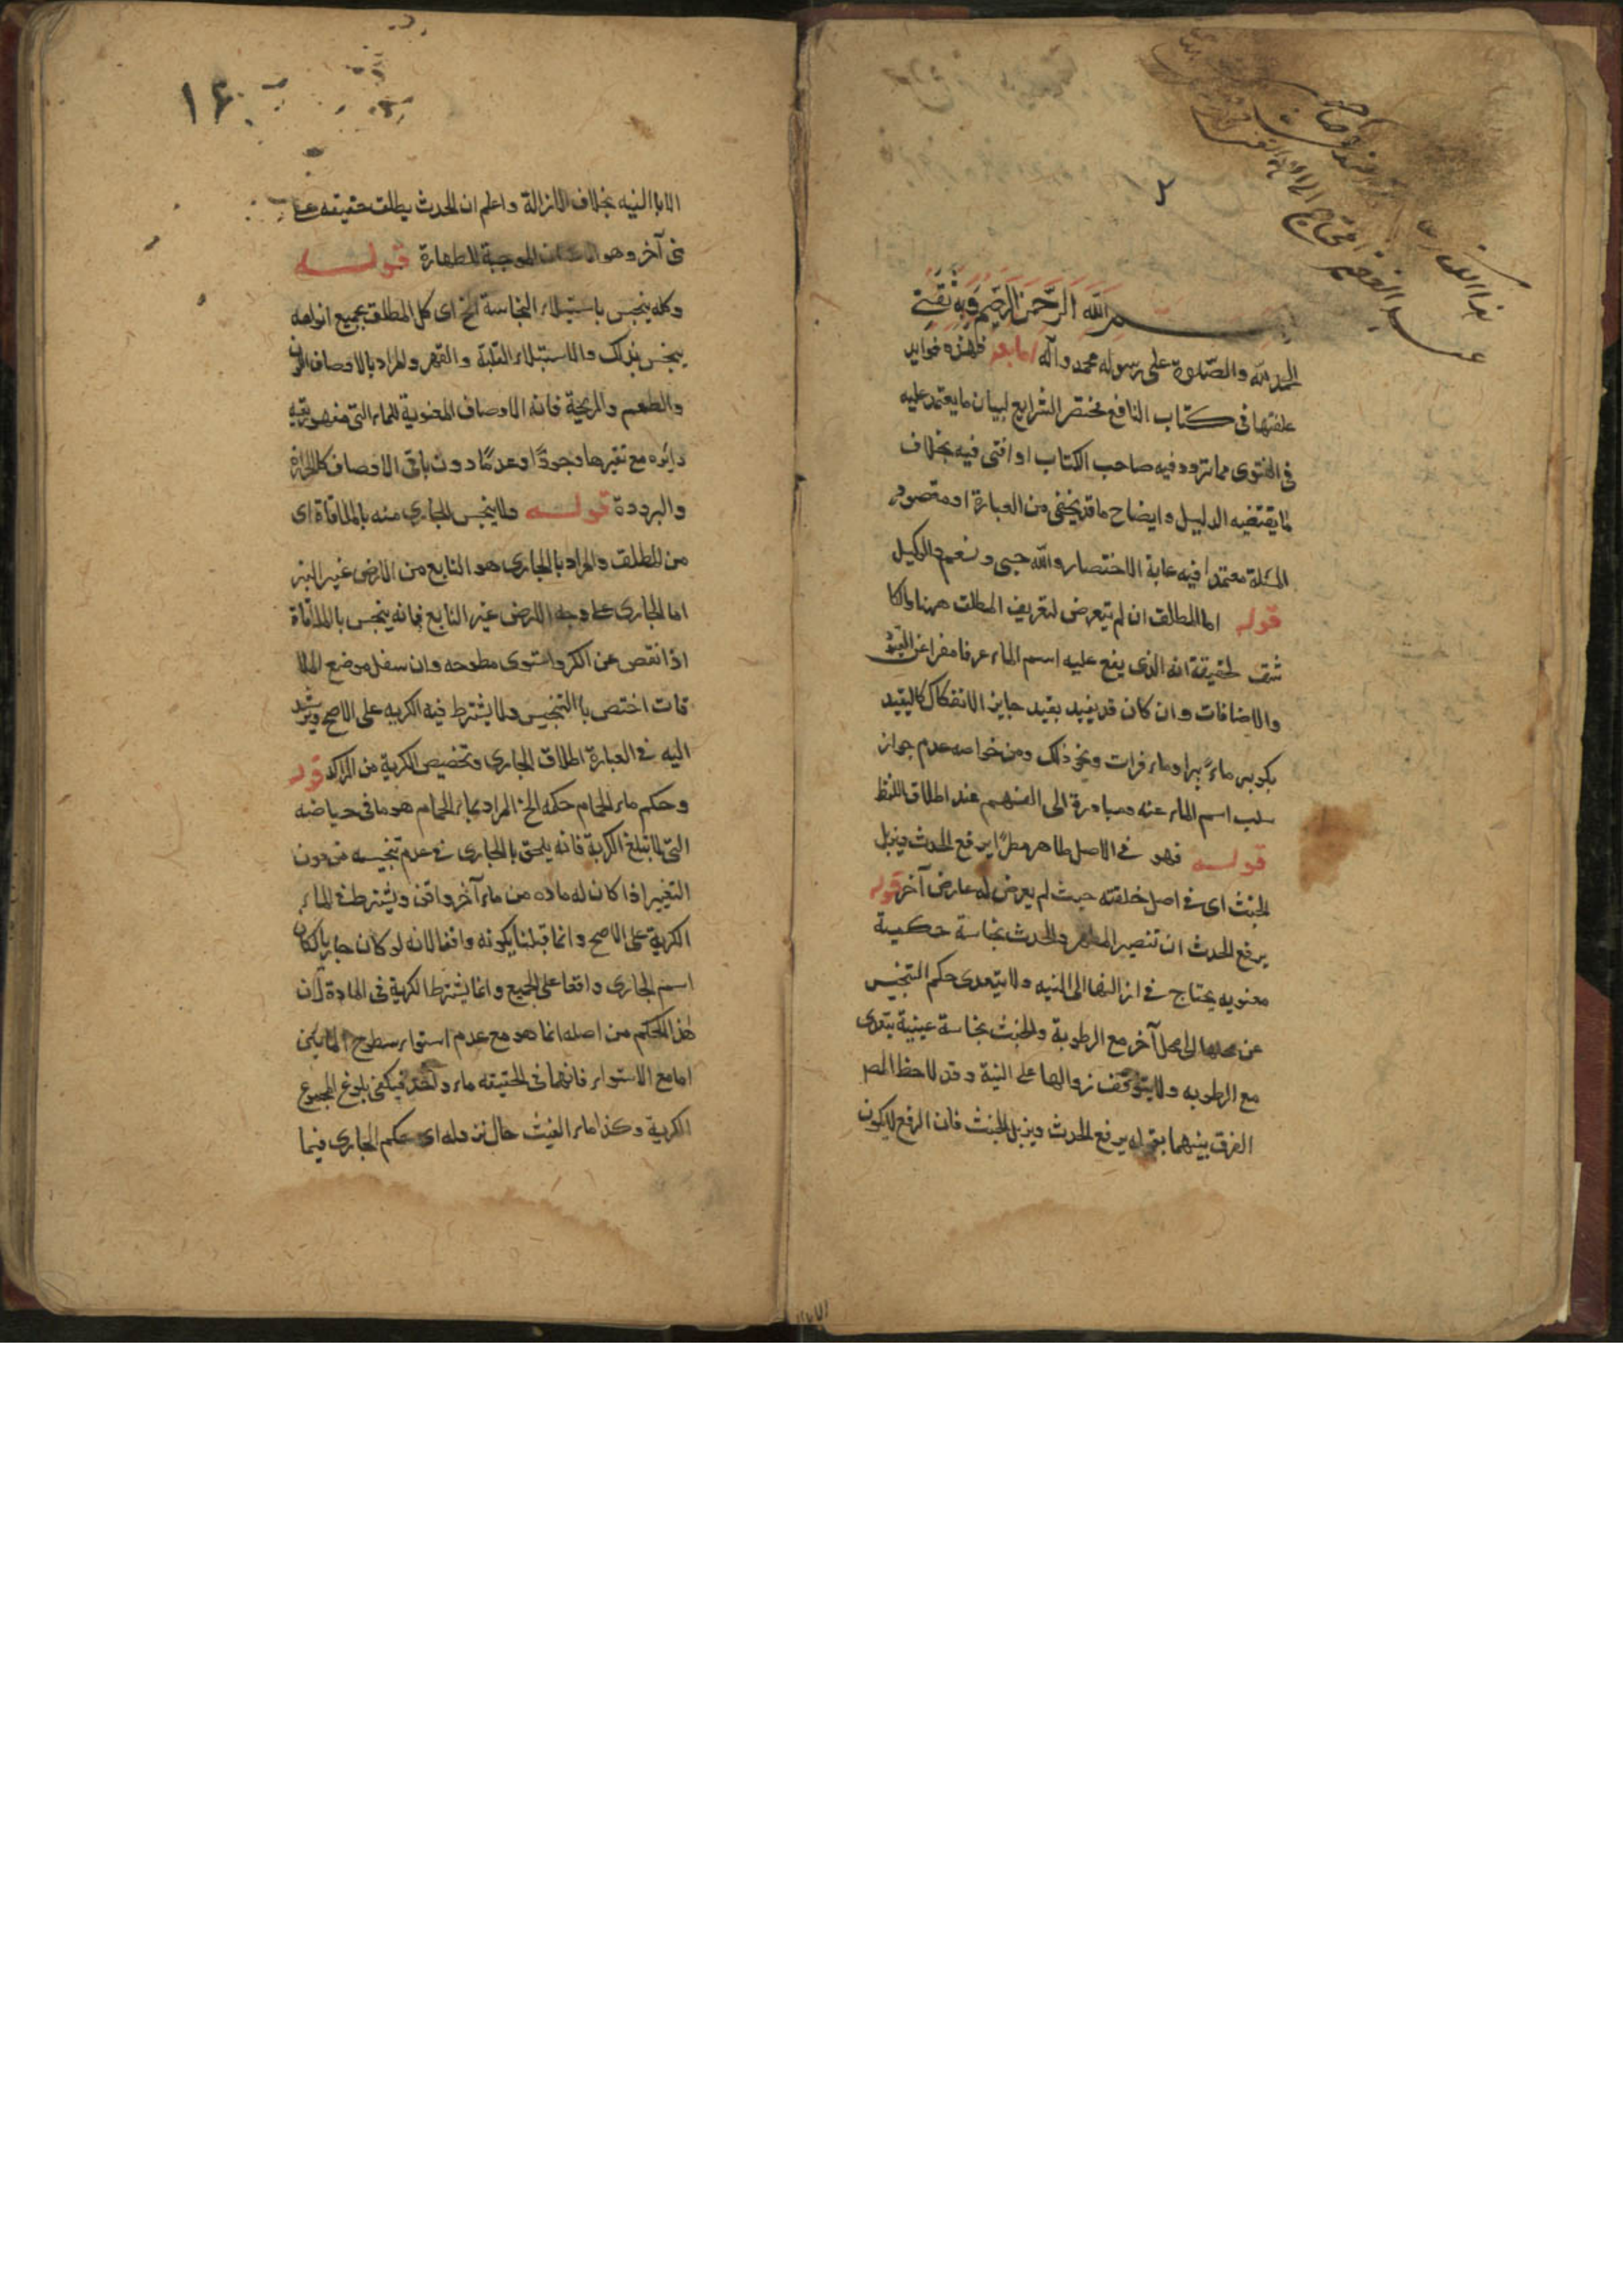 بسم الله الرَّحمن الرَّحيم وَبِهِ ثِقَتي
الحمد لله والصّلوة على رسوله محمد وآله اما بعد فهذه فوايد
علقتها في كتاب النافع مختصر الشرايع لبيان ما يعتمد عليه
في الفتوى مما تردد فيه صاحب الكتاب او افتى فيه بخلاف
لما يقتضيه الدليل وايضاح ما قد يخفى من العبارة او مقصود
المسئلة معتمدا فيه غاية الاختصار والله حسبي ونعم الوكيل
قوله اما المطلق ان لم يتعرض لتعريف المطلق هنا
لحقيقة انه الذي يقع عليه اسم الماء عرفا من غير
والاضافات وان كان قد يفيد بقيد جايز الانفكاك كالتقييد
بكونه ماء بئر او ماء فرات ونحو ذلك ومن خواصه عدم جواز
سلب اسم الماء عنه ومبادرة الى الفهم عند اطلاق اللفظ
قوله فهو في الاصل طاهر مطهرًا يرفع الحدث ويزيل
الخبث اى في اصل خلقته حيث لم يعرض له عارض آخر قوله
يرفع الحدث ان تنصير الماء والحدث نجاسة حكمية
معنويه يحتاج في ازالتها الى النيه ولا يتعدى حكم التنجيس
عن محلها الى محل آخر مع الرطوبة والخبث نجاسة عينية يتعدى
مع الرطوبه ولا يتوقف زوالها على النية وقد لاحظ المص
الفرق بينهما بقوله يرفع الحدث ويزيل الخبث فان الرفع لا يكون
١۶٠
الا بالنيه بخلاف الازالة واعلم ان الحدث يطلق حقيقه على
شئ آخر وهو الموجبة للطهارة قوله
وكله ينجس باستيلاء النجاسة الخ اى كل المطلق بجميع انواعه
ينجس بذلك والاستيلاء الغلبة والقهر والمراد بالاوصاف اللون
والطعم والريحة فانه الاوصاف المعنوية للماء التي
دايره مع تغيرها وجودًا وعدمًا دون باقي الاوصاف كالحرارة
والبرودة قوله ولا ينجس الجاري منه بالملاقاة اى
من المطلق والمراد بالجاري هو النابع من الارض غير البئر
اما الجاري على وجه الارض غير النابع فانه ينجس بالملاقاة
اذا نقص عن الكر واستوى سطوحه وان سفل موضع الملا
قات اختص بالتنجيس ولا يشترط فيه الكريه على الاصح ويرشد
اليه في العبارة اطلاق الجاري وتخصيص الكرية من الراكد قوله
وحكم ماء الحمام حكمه الخ المراد بماء الحمام هو ما في حياضه
التي لا تبلغ الكرية فانه يلحق بالجاري في عدم تنجيسه من دون
التغيير اذا كان له ماده من ماء آخر واقف ويشترط في الماء
الكرية على الاصح وانما قيدنا بكونه واقفا لانه لو كان جاريا لكان
اسم الجاري واقعا على الجميع وانما يشترط الكرية في المادة لان
هذا الحكم من اصله انما هو مع عدم استواء سطوح المائين
اما مع الاستواء فانهما في الحقيقه ماء واحد فيكفي بلوغ المجموع
الكرية وكذا ماء الغيث حال نزوله اى حكم الجاري فيما